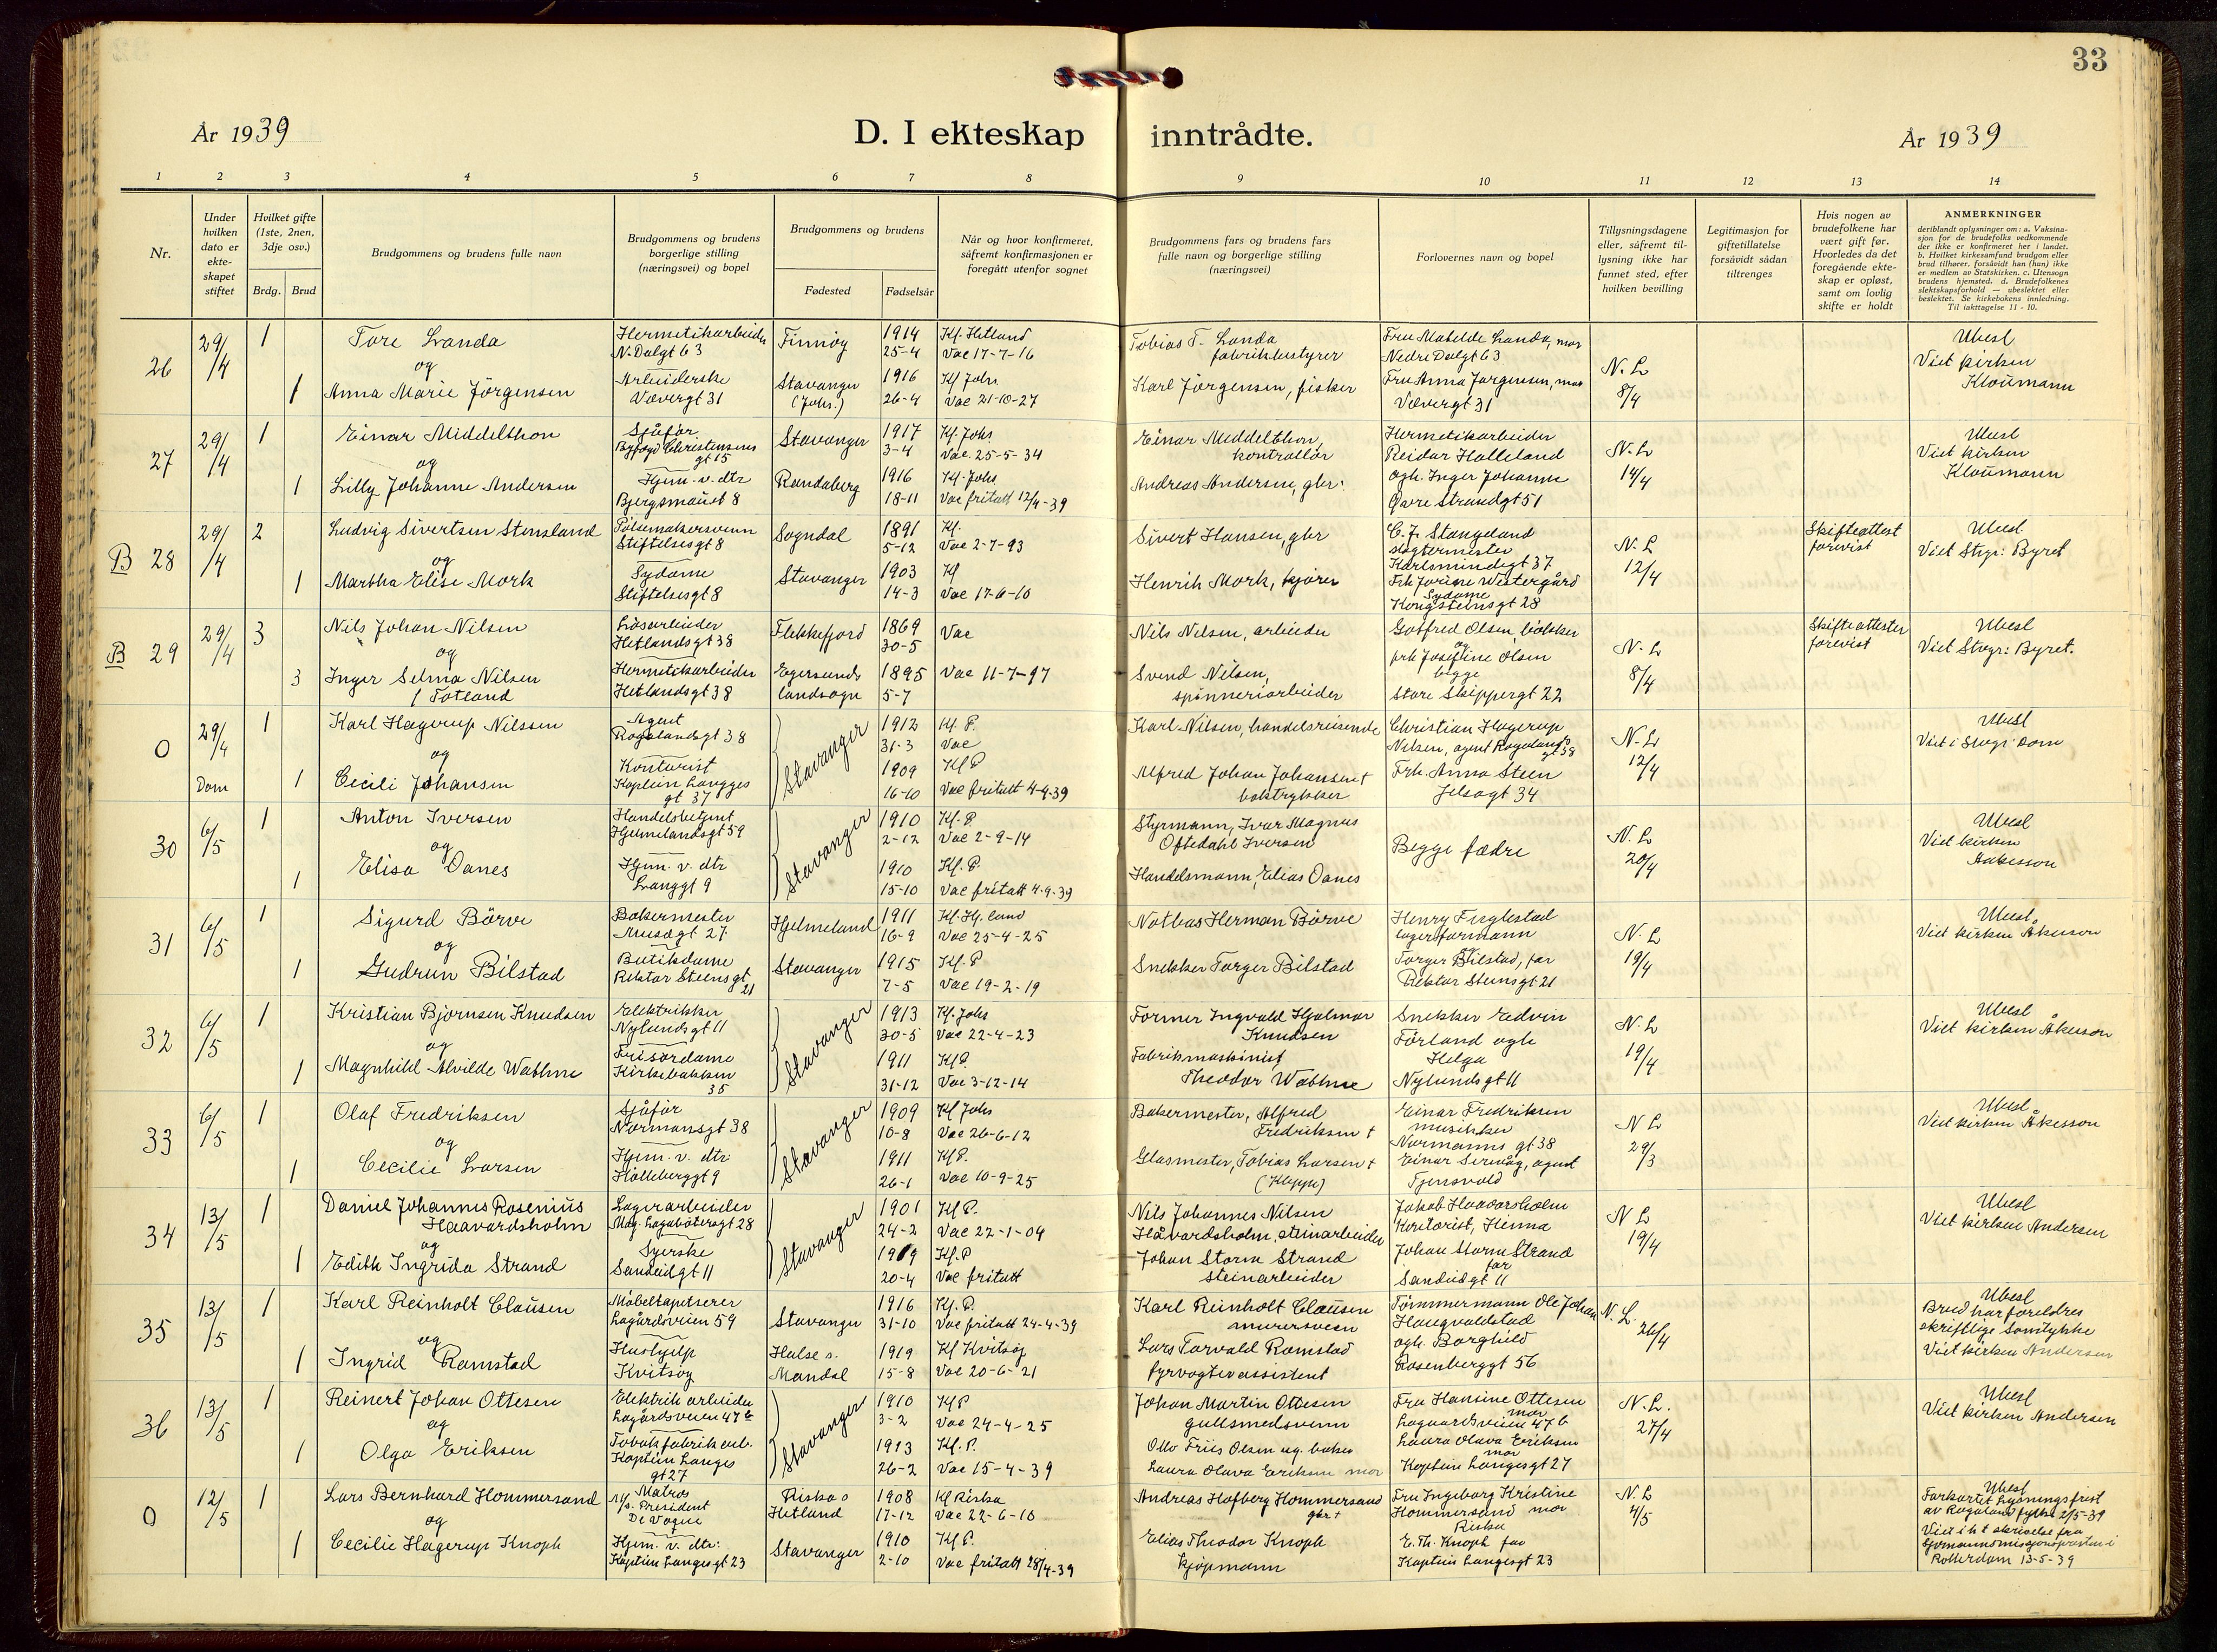 33
År 1939
D. I ekteskap inntrådte.
År 1939
1 2 3 4 5 6 7 8 9 10 11 12 13 14
Nr.
Under hvilken dato er ekte-skapet stiftet
Hvilket gifte (1ste, 2nen, 3dje osv.)
Brdg. Brud
Brudgommens og brudens fulle navn
Brudgommens og brudens borgerlige stilling (næringsvei) og bopel
Brudgommens og brudens
Fødested Fødselsår
Når og hvor konfirmeret, såfremt konfirmasjonen er foregått utenfor sognet
Brudgommens fars og brudens fars fulle navn og borgerlige stilling (næringsvei)
Forlovernes navn og bopel
Tillysningsdagene eller, såfremt til-lysning ikke har funnet sted, efter hvilken bevilling
Legitimasjon for giftetillatelse forsåvidt sådan tiltrenges
Hvis nogen av brudefolkene har vært gift før. Hvorledes da det foregående ekte-skap er opløst, samt om lovlig skifte er holdt
ANMERKNINGER
deriblandt oplysninger om: a. Vaksina-sjon for de brudefolks vedkommende der ikke er konfirmeret her i landet. b. Hvilket kirkesamfund brudgom eller brud tilhører, forsåvidt han (hun) ikke er medlem av Statskirken. c. Utensogn brudens hjemsted. d. Brudefolkenes slektskapsforhold — ubeslektet eller beslektet. Se kirkebokens innledning. Til iakttagelse 11 - 10.
26 29/4 1 Tore Landa Hermetikarbeider N. Dalgt 63 Finnøy 1914 25-4 Kf. Hetland Vac 17-7-16 Tobias T. Landa fabrikkbestyrer Fru Matelde Landa, mor Nedre Dalgt 63 N. L 8/4 Ubesl Viet kirken Kloumann
og
1 Anna Marie Jörgensen Arbeiderske Vævergt 31 Stavanger (Johs.) 1916 26-4 Kf Johs Vac 21-10-27 Karl Jörgensen, fisker Fru Anna Jørgensen, mor Vævergt 31
27 29/4 1 Einar Middelthon Sjåfør Byfogd Christensens gt 15 Stavanger 1917 3-4 Kf. Johs Vac. 25-5-34 Einar Middelthon, kontrollør Hermetikarbeider Reidar Halleland N. L 14/4 Ubesl Viet kirken Kloumann
og
1 Lilly Johanne Andersen Hjem. v. dtr Bjergsmauet 8 Randaberg 1916 18-11 Kf. Johs Vac fritatt 12/4-39 Andreas Andersen, gbr. ogh. Inger Johanne Øvre Strandgt 51
B 28 29/4 2 Ludvig Sivertsen Stensland Pølsemakersvenn Stiftelsesgt 8 Sogndal 1891 5-12 Kf. Vac 2-7-93 Sivert Hansen, gbr C. J. Stangeland slagtermester Karlsmindegt 37 N. L 12/4 Skifteattest forevist Ubesl Viet Stvgr: Byret
og
1 Martha Elise Mork Sydame Stiftelsesgt 8 Stavanger 1903 14-3 Kf Vac 17-6-10 Henrik Mork, kjører Frk Jorine Westergård Sydame Kongsteinsgt 28
B 29 29/4 3 Nils Johan Nilsen Løsarbeider Hetlandsgt 38 Flekkefjord 1869 30-5 Vac Nils Nilsen, arbeider Gotfred Olsen, bøkker N. L 8/4 Skifteattester forevist Ubesl Viet Stvgr: Byret.
og
3 Inger Selma Nilsen f Totland Hermetikarbeider Hetlandsgt 38 Egersunds landsogn 1895 5-7 Vac 11-7-97 Svend Nilsen, spinneriarbeider og frk Josefine Olsen begge Store Skippergt 22
0 29/4 Dom 1 Karl Hagerup Nilssen Agent Rogalandsgt 38 Stavanger 1912 31-3 Kf. P. Vac Karl Nilsen, handelsreisende Christian Hagerup Nilsen, agent Rogalandsgt 38 N. L 12/4 Ubesl Viet i Stvgr Dom
og
1 Cecili Johansen Kontorist Kaptein Langges gt 37 1909 16-10 Kf P Vac fritatt 4-4-39 Alfred Johan Johansen + boktrykker Frk. Anna Steen Jelsagt 34
30 6/5 1 Anton Iversen Handelsbetjent Hjelmelandsgt 59 Stavanger 1910 2-12 Kf. P. Vac 2-9-14 Styrmann, Ivar Magnus Oftedahl Iversen Begge fædre N. L 20/4 Ubesl Viet kirken Aakesson
og
1 Elisa Oanes Hjem. v. dtr Langgt 9 1910 15-10 Kf. P Vac fritatt 4-9-39 Handelsmann, Elias Oanes
31 6/5 1 Sigurd Börve Bakermester Musegt 27 Hjelmeland 1911 16-9 Kf. Hj. land Vac 25-4-25 Notbas Herman Börve Henry Fuglestad lagerformann N. L 19/4 Ubesl. Viet kirken Åkesson
og
1 Gudrun Bilstad Butikdame Rektor Steensgt 21 Stavanger 1915 7-5 Kf. P Vac 19-2-19 Snekker Torger Bilstad og Torger Bilstad, far Rektor Steensgt 21
32 6/5 1 Kristian Bjørnsen Knudsen Elektrikker Nylundsgt 11 Stavanger 1913 30-5 Kf. Johs Vac 22-4-23 Former Ingvald Hjalmar Knudsen Snekker Edvin Förland ogh N. L 19/4 Ubesl Viet kirken Åkesson
og
1 Magnhild Alvilde Wathne Frisørdame Kirkebakken 35 1911 31-12 Kf P. Vac 3-12-14 Fabrikmaskinist Theodor Wathne Helga Nylundsgt 11
33 6/5 1 Olaf Fredriksen Sjåfør Normansgt 38 Stavanger 1909 10-8 Kf Johs Vac 26-6-12 Bakermester, Alfred Fredriksen + Einar Fredriksen musikker Normanns gt 38 N L 29/3 Ubesl. Viet kirken Åkesson
og
1 Cecilie Larsen Hjem. v. dtr. Holleberggt 9 1911 26-1 Kf P. Vac 10-9-25 Glasmester, Tobias Larsen + (Kleppe) Einar Servåg, agent Tjensvold
34 13/5 1 Daniel Johannes Rosenius Haavardsholm Lagerarbeider Mag. Lagabötersgt 28 Stavanger 1901 24-2 Kf P. Vac 22-1-04 Nils Johannes Nilsen Håvardsholm, steinarbeider Jakob Haavarsholm Kontorist, Hinna N L 19/4 Ubesl Viet kirken Andersen
og
1 Edith Ingrida Strand Syerske Sandeidgt 11 1919 20-4 Kf. P Vac fritatt Johan Storm Strand steinarbeider Johan Storm Strand far Sandeidgt 11
35 13/5 1 Karl Reinholt Clausen Møbeltapetserer Lagårdsveien 59 Stavanger 1916 31-10 Kf. P. Vac fritatt 24-4-39 Karl Reinholt Clausen murersvenn Tømmermann Ole Johan Haugvaldstad N. L. 26/4 Ubesl Brud har foreldres skriftlige Samtykke Viet kirken Andersen
og
1 Ingrid Ramstad Hushjelp Kvitsøy Halse s. Mandal 1919 15-8 Kf Kvitsøy Vac 20-6-21 Lars Torvald Ramstad fyrvogterassistent ogh. Borghild Rosenberggt 56
36 13/5 1 Reinert Johan Ottesen Elektrik arbeider Lagårdsveien 47 b Stavanger 1910 3-2 Kf P Vac 24-4-25 Johan Martin Ottesen gullsmedsvenn Fru Hansine Ottesen mor Lagaardsveien 47 b N. L. 27/4 Ubesl Viet kirken Andersen
og
1 Olga Eriksen Tobakfabrik arb. Kaptein Langes gt 27 1913 26-2 Kf. P. Vac 15-4-39 Otto Friis Olsen ug. baker Laura Olava Eriksen mor Laura Olava Eriksen mor Kaptein Langesgt 27
0 12/5 1 Lars Bernhard Hommersand Matros M/s. President De Vogue Riska s Hetland 1908 17-12 Kf Riska Vac 22-6-10 Andreas Hofberg Hommersand gbr + Fru Ingeborg Kristine Hommersand mor Riska N. L 4/5 Ubesl Forkortet lysningsfrist av Rogaland fylke 2/5-39 Viet iht skrivelse fra Sjømannsmisjonspresten i Rotterdam 13-5-39
og
1 Cecilie Hagerup Knoph Hjem. v. dtr. Kaptein Langesgt 23 Stavanger 1910 2-10 Kf P. Vac fritatt 28/4-39 Elias Theodor Knoph kjøpmann E. Th. Knoph far Kaptein Langesgt 23